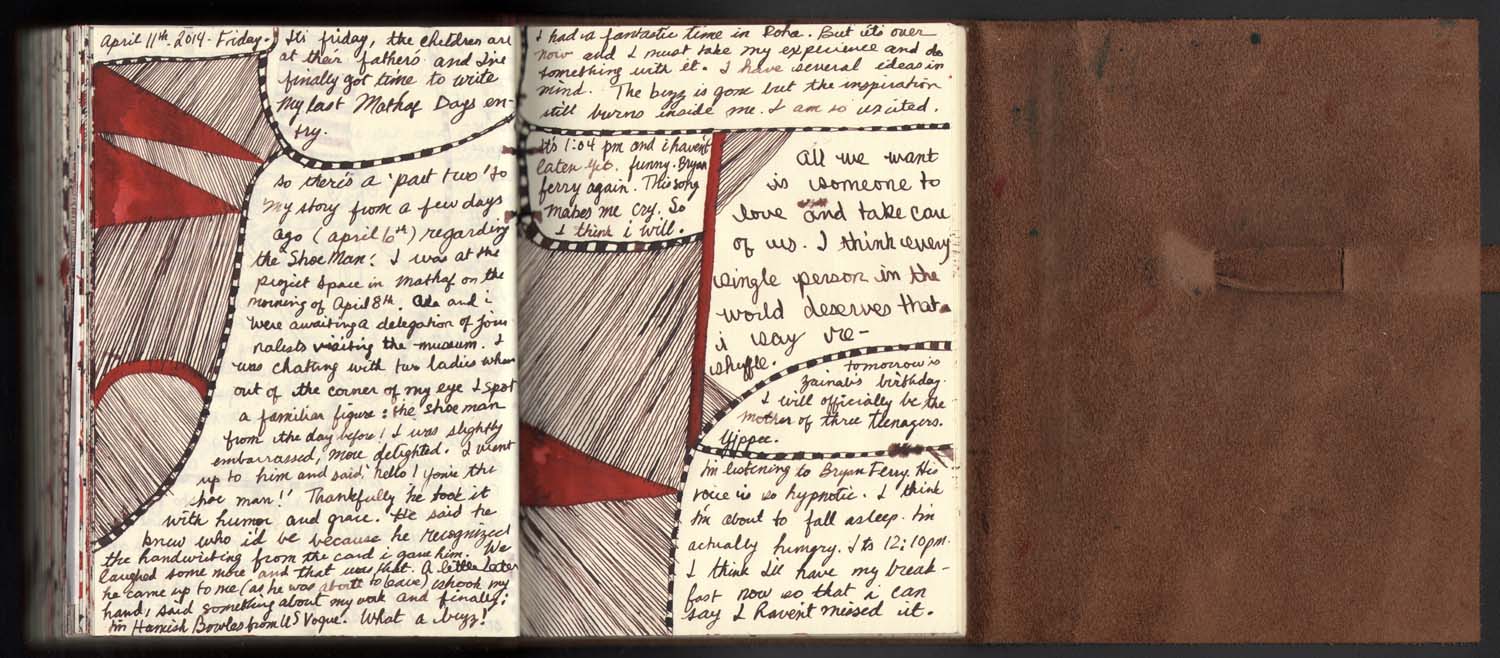 April 11th. 2014. Friday.
Its friday, the children are
at their father's and I've
finally got time to write
my last Mathaf Days en-
try.
so there's a 'part two' to
my story from a few days
ago (april 6th) regarding
the 'Shoe Man'. I was at the
project space in Mathaf on the
morning of April 8th. Ala and i
were awaiting a delegation of jour
nalists visiting the museum. I
was chatting with two ladies when
out of the corner of my eye I spot
a familiar figure: the shoe man
from the day before! I was slightly
embarrassed, more delighted. I went
up to him and said, 'hello! you're the
shoe man!' Thankfully he took it
with humor and grace. He said he
knew who i'd be because he recognized
the handwriting from the card i gave him. We
laughed some more and that was that. A little later
he came up to me (as he was about to leave) shook my
hand, said something about my work and finally:
I'm Hamish Bowles from US Vogue. What a buzz!
I had a fantastic time in Doha. But it's over
now and I must take my experience and do
something with it. I have several ideas in
mind. The buzz is gone but the inspiration
still burns inside me. I am so excited.
It's 1:04 pm and i haven't
eaten yet. funny. Bryan
ferry again. This song
makes me cry. So
I think i will.
all we want
is someone to
love and take care
of us. I think every
single person in the
world deserves that.
i say re-
shuffle.
tomorrow is
zainab's birthday.
I will officially be the
mother of three teenagers.
Yippee.
I'm listening to Bryan Ferry. His
voice is so hypnotic. I think
I'm about to fall asleep. I'm
actually hungry. Its 12:10pm.
I think I'll have my break-
fast now so that i can
say I haven't missed it.